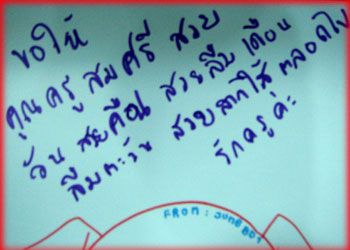 ขอให้
คุณครู สมศรี สวย
วัน สวยคืน สวยลืมเดือน
ลืมตะวัน สวยสดใส ตลอดไป
รักครูค่ะ
From : June Boy